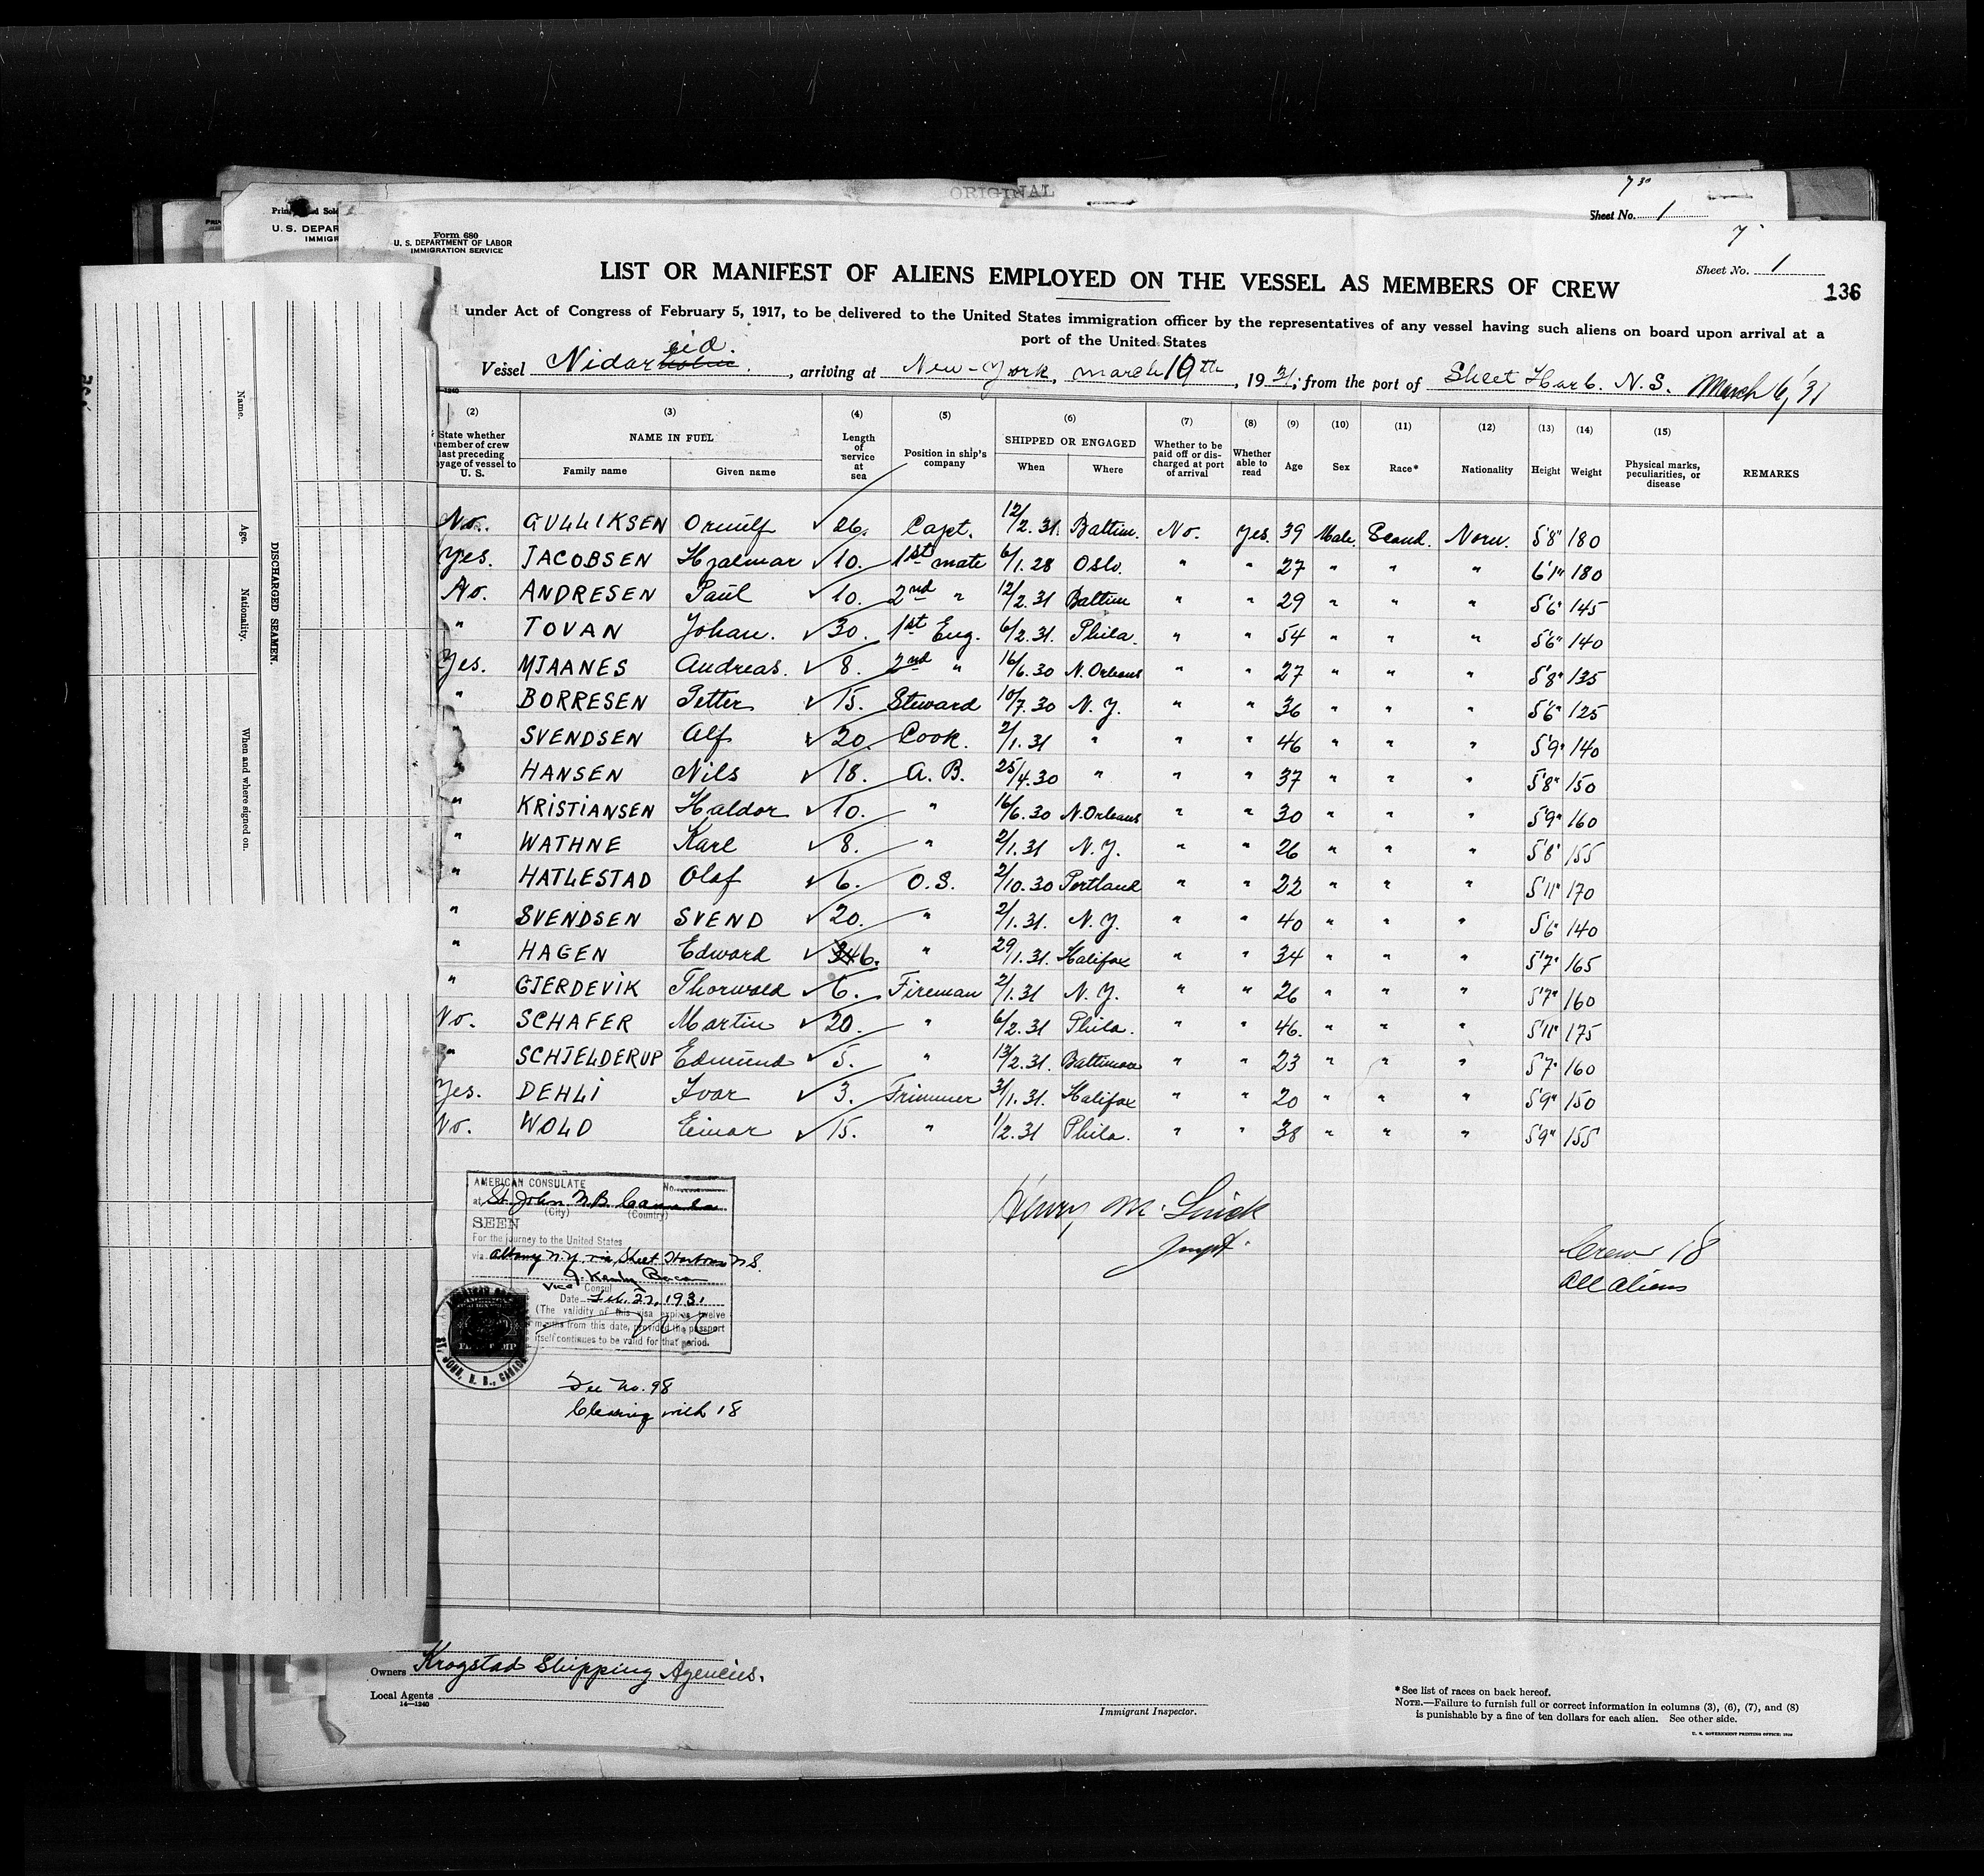 ORIGINAL
7 30
Sheet No. 1
U. S. DEPAR
IMMIGR
Form 680
U. S. DEPARTMENT OF LABOR
IMMIGRATION SERVICE
7
Sheet No. 1
136
LIST OR MANIFEST OF ALIENS EMPLOYED ON THE VESSEL AS MEMBERS OF CREW
under Act of Congress of February 5, 1917, to be delivered to the United States immigration officer by the representatives of any vessel having such aliens on board upon arrival at a
port of the United States
Vessel Nidareid., arriving at New-York, march 10th, 1931, from the port of Sheet Harb. N.S. March 6, '31
(2) (3) (4) (5) (6) (7) (8) (9) (10) (11) (12) (13) (14) (15)
State whether member of crew last preceding voyage of vessel to U. S. NAME IN FULL Family name Given name Length of service at sea Position in ship's company SHIPPED OR ENGAGED When Where Whether to be paid off or discharged at port of arrival Whether able to read Age Sex Race* Nationality Height Weight Physical marks, peculiarities, or disease REMARKS
No. GULLIKSEN Ornulf 26. Capt. 12/2.31. Baltim. No. Yes. 39 Male. Scand. Norw. 5'8" 180
Yes. JACOBSEN Hjalmar 10. 1st mate 6/1.28 Oslo. " " 27 " " " 6'1" 180
No. ANDRESEN Paul 10. 2nd " 12/2.31 Baltim " " 29 " " " 5'6" 145
" TOVAN Johan. 30. 1st Eng. 6/2.31. Phila. " " 54 " " " 5'6" 140
Yes. MJAANES Andreas. 8. 2nd " 16/6.30 N.Orleans " " 27 " " " 5'8" 135
" BORRESEN Petter 15. Steward 10/7.30 N.Y. " " 36 " " " 5'6" 125
" SVENDSEN Alf 20. Cook. 2/1.31 " " " 46 " " " 5'9" 140
" HANSEN Nils 18. A.B. 25/4.30 " " " 37 " " " 5'8" 150
" KRISTIANSEN Haldor 10. " 16/6.30 N.Orleans " " 30 " " " 5'9" 160
" WATHNE Karl 8. " 2/1.31 N.Y. " " 26 " " " 5'8" 155
" HATLESTAD Olaf 6. O.S. 2/10.30 Portland " " 22 " " " 5'11" 170
" SVENDSEN SVEND 20. " 2/1.31. N.Y. " " 40 " " " 5'6" 140
" HAGEN Edward 6. " 29/1.31. Halifax " " 34 " " " 5'7" 165
" GJERDEVIK Thorwald 6. Fireman 2/1.31 N.Y. " " 26 " " " 5'7" 160
No. SCHAFER Martin 20. " 6/2.31 Phila. " " 46. " " " 5'11" 175
" SCHJELDERUP Edmund 5. " 13/2.31. Baltimore " " 23 " " " 5'7" 160
Yes. DEHLI Ivar 3. Trimmer 31/1.31. Halifax " " 20 " " " 5'9" 150
No. WOLD Einar 15. " 1/2.31 Phila. " " 38 " " " 5'9" 155
DISCHARGED SEAMEN.
Name. Age. Nationality. When and where signed on.
AMERICAN CONSULATE No.
at St. John. N.B. Canada
(City) (Country)
SEEN
For the journey to the United States
via Albany N.Y. via Sheet Harbour N.S.
Vice Consul
Date Feb. 27, 1931
(The validity of this visa expires twelve
months from this date, provided the passport
itself continues to be valid for that period.
ST. JOHN, N. B., CANADA
Fee No. 98
Clearing with 18
Henry M.
Inspt.
Crew 18
All aliens
Owners Krogstad Shipping Agencies.
Local Agents
14—1240
Immigrant Inspector.
*See list of races on back hereof.
NOTE.—Failure to furnish full or correct information in columns (3), (6), (7), and (8)
is punishable by a fine of ten dollars for each alien. See other side.